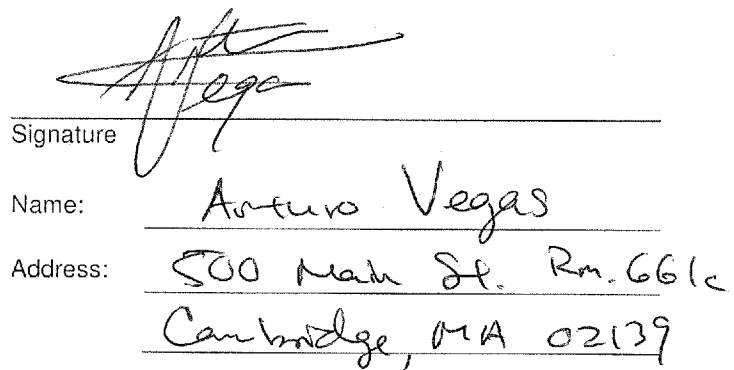 Vega
Signature
Name: Arturo Vegas
Address: 500 Main St. Rm. 661c
Cambridge, MA 02139